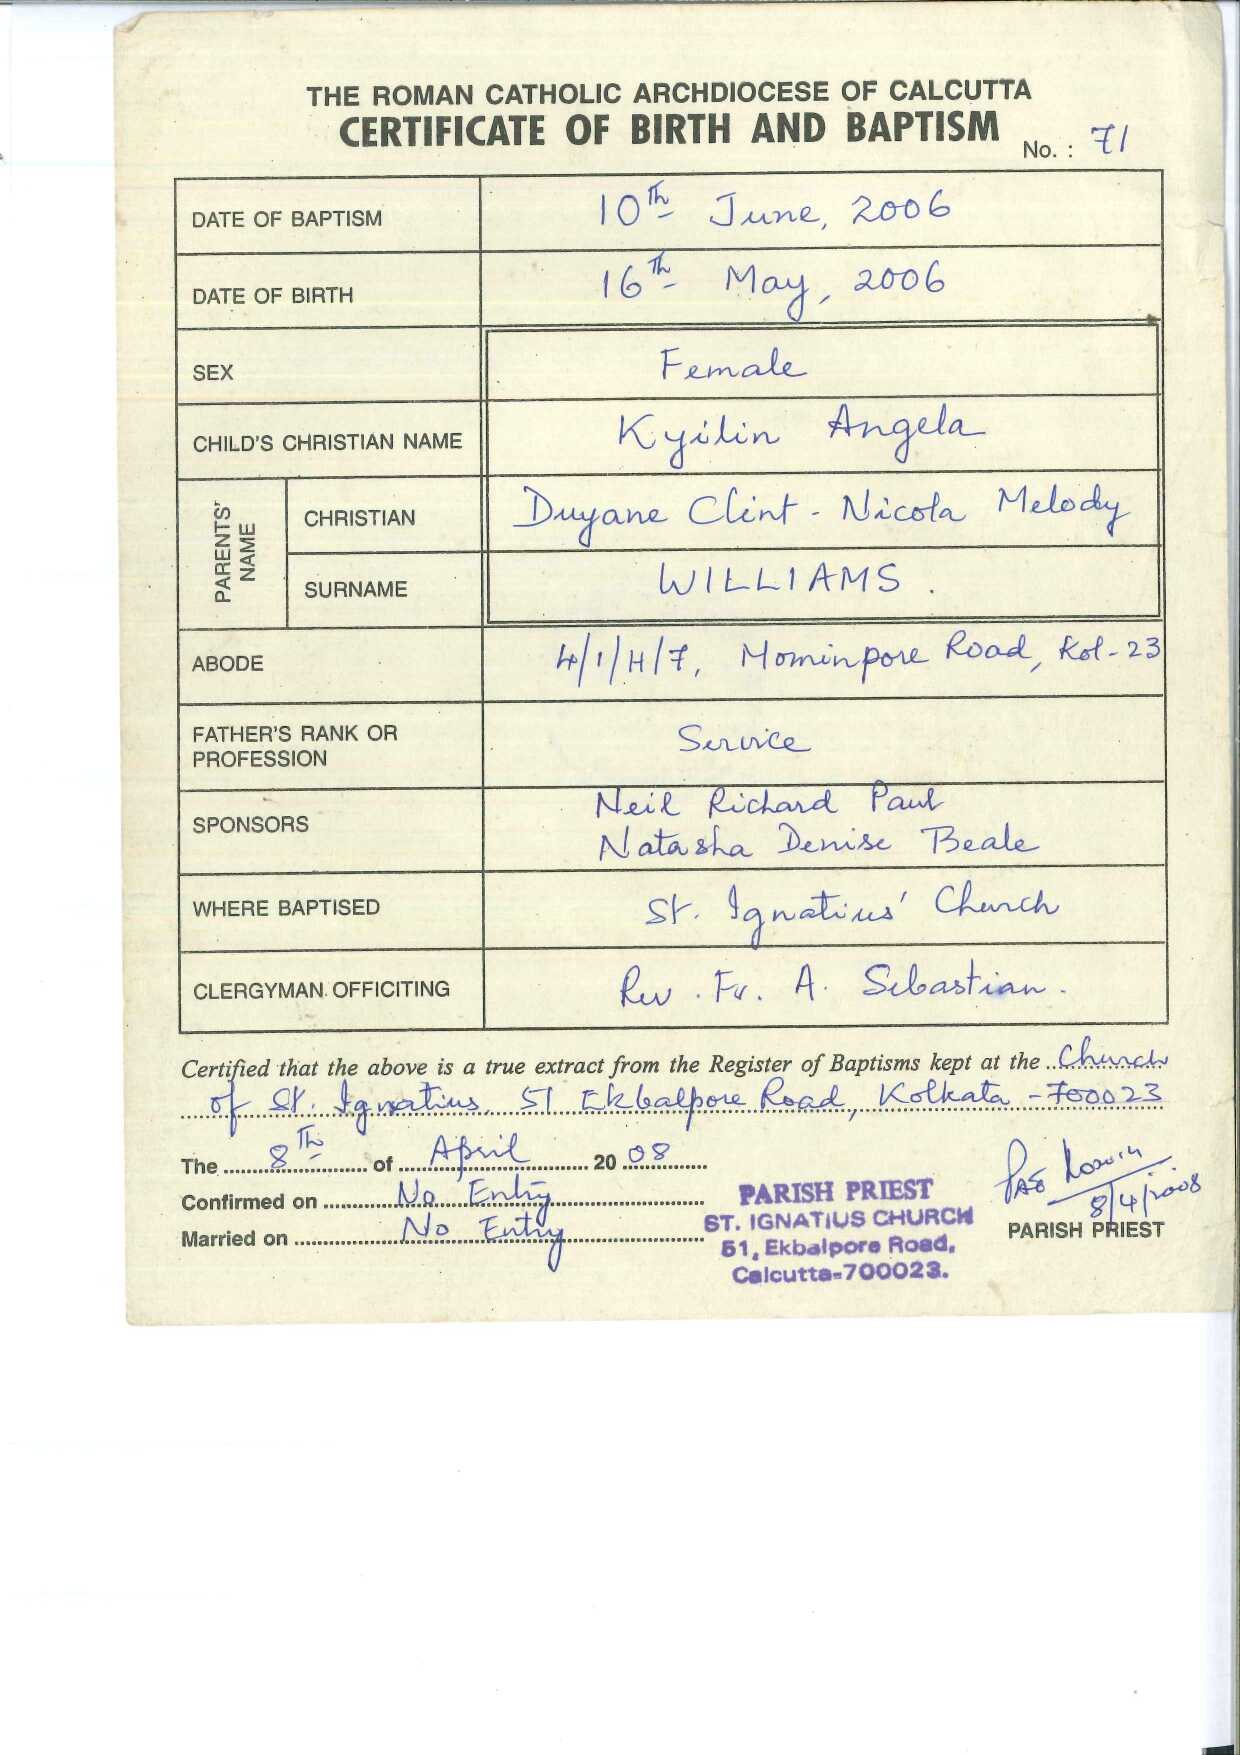 THE ROMAN CATHOLIC ARCHDIOCESE OF CALCUTTA
CERTIFICATE OF BIRTH AND BAPTISM
No. : 71
DATE OF BAPTISM 10th June, 2006
DATE OF BIRTH 16th May, 2006
SEX Female
CHILD'S CHRISTIAN NAME Kyilin Angela
PARENTS' NAME
CHRISTIAN Duyane Clint - Nicola Melody
SURNAME WILLIAMS.
ABODE 4/1/H/7, Mominpore Road, Kol-23
FATHER'S RANK OR
PROFESSION Service
SPONSORS Neil Richard Paul
Natasha Denise Beale
WHERE BAPTISED St. Ignatius' Church
CLERGYMAN OFFICITING Rev. Fr. A. Sebastian.
Certified that the above is a true extract from the Register of Baptisms kept at the Church
of St. Ignatius, 51 Ekbalpore Road, Kolkata - 700023
The 8Th of April 20 08
Confirmed on No Entry
Married on No Entry
PARISH PRIEST
ST. IGNATIUS CHURCH
51, Ekbalpore Road,
Calcutta-700023.
8/4/2008
PARISH PRIEST